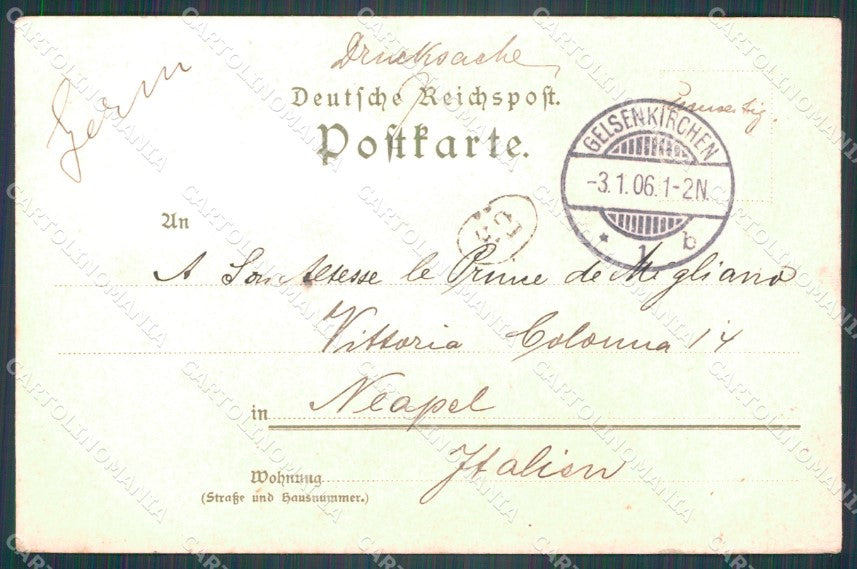 Drucksache
Deutsche Reichspost.
Postkarte.
GELSENKIRCHEN
-3.1.06.1-2N.
* 1 b
An
A Son Altesse le Prince de Migliano
Vittoria Colonna 14
in Neapel
Italien
Wohnung
(Straße und Hausnummer.)
CARTOLINOMANIA